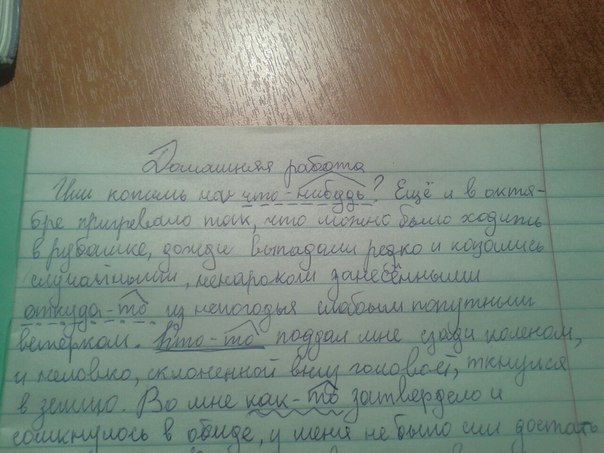 Домашняя работа
Или копать на что-нибудь? Ещё и в октя-
бре пригревало так, что можно было ходить
в рубашке, дожди выпадали редко и казались
случайными, ненароком занесёнными
откуда-то из непогодья слабым попутным
ветерком. Кто-то поддал мне сзади коленом,
и неловко, склоненной вниз головой, ткнулся
в землю. Во мне как-то затвердело и
сомкнулось в обиде, у меня не было сил достать